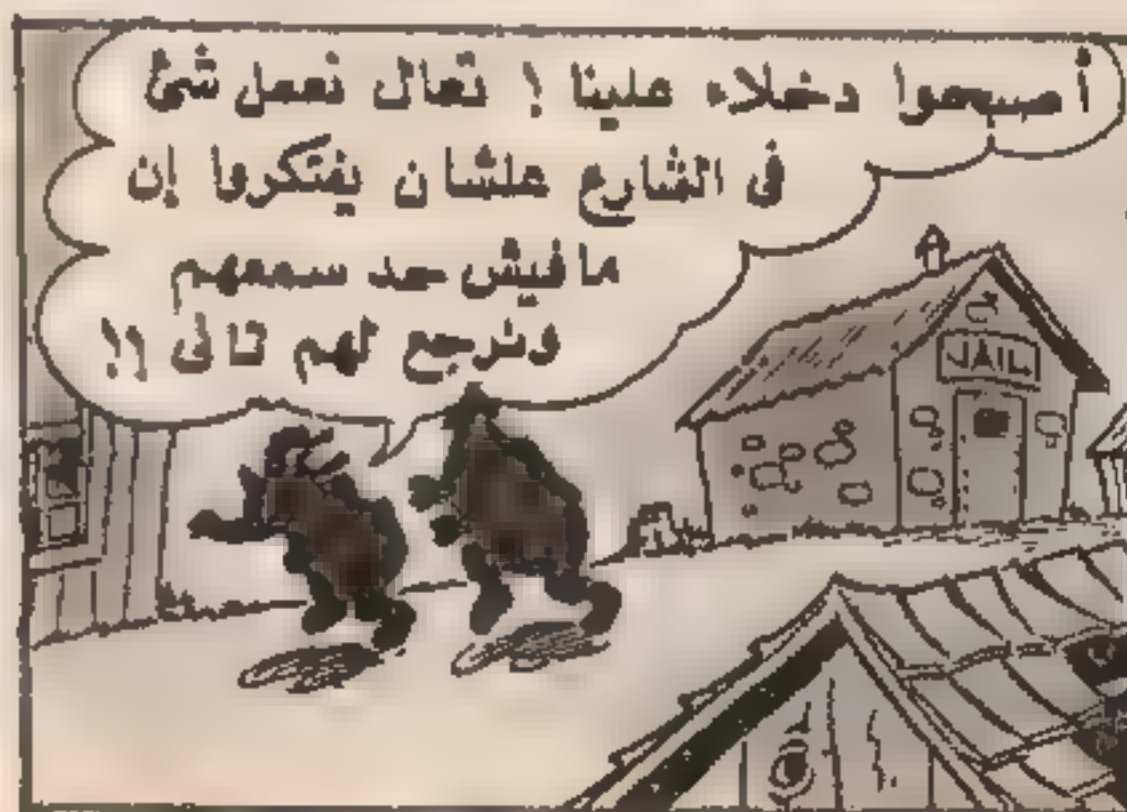 أصبحوا دخلاء علينا ! تعال نعمل شئ
فى الشارع علشان يفتكروا إن
مافيش حد سمعهم
ونرجع لهم تانى !!
JAIL